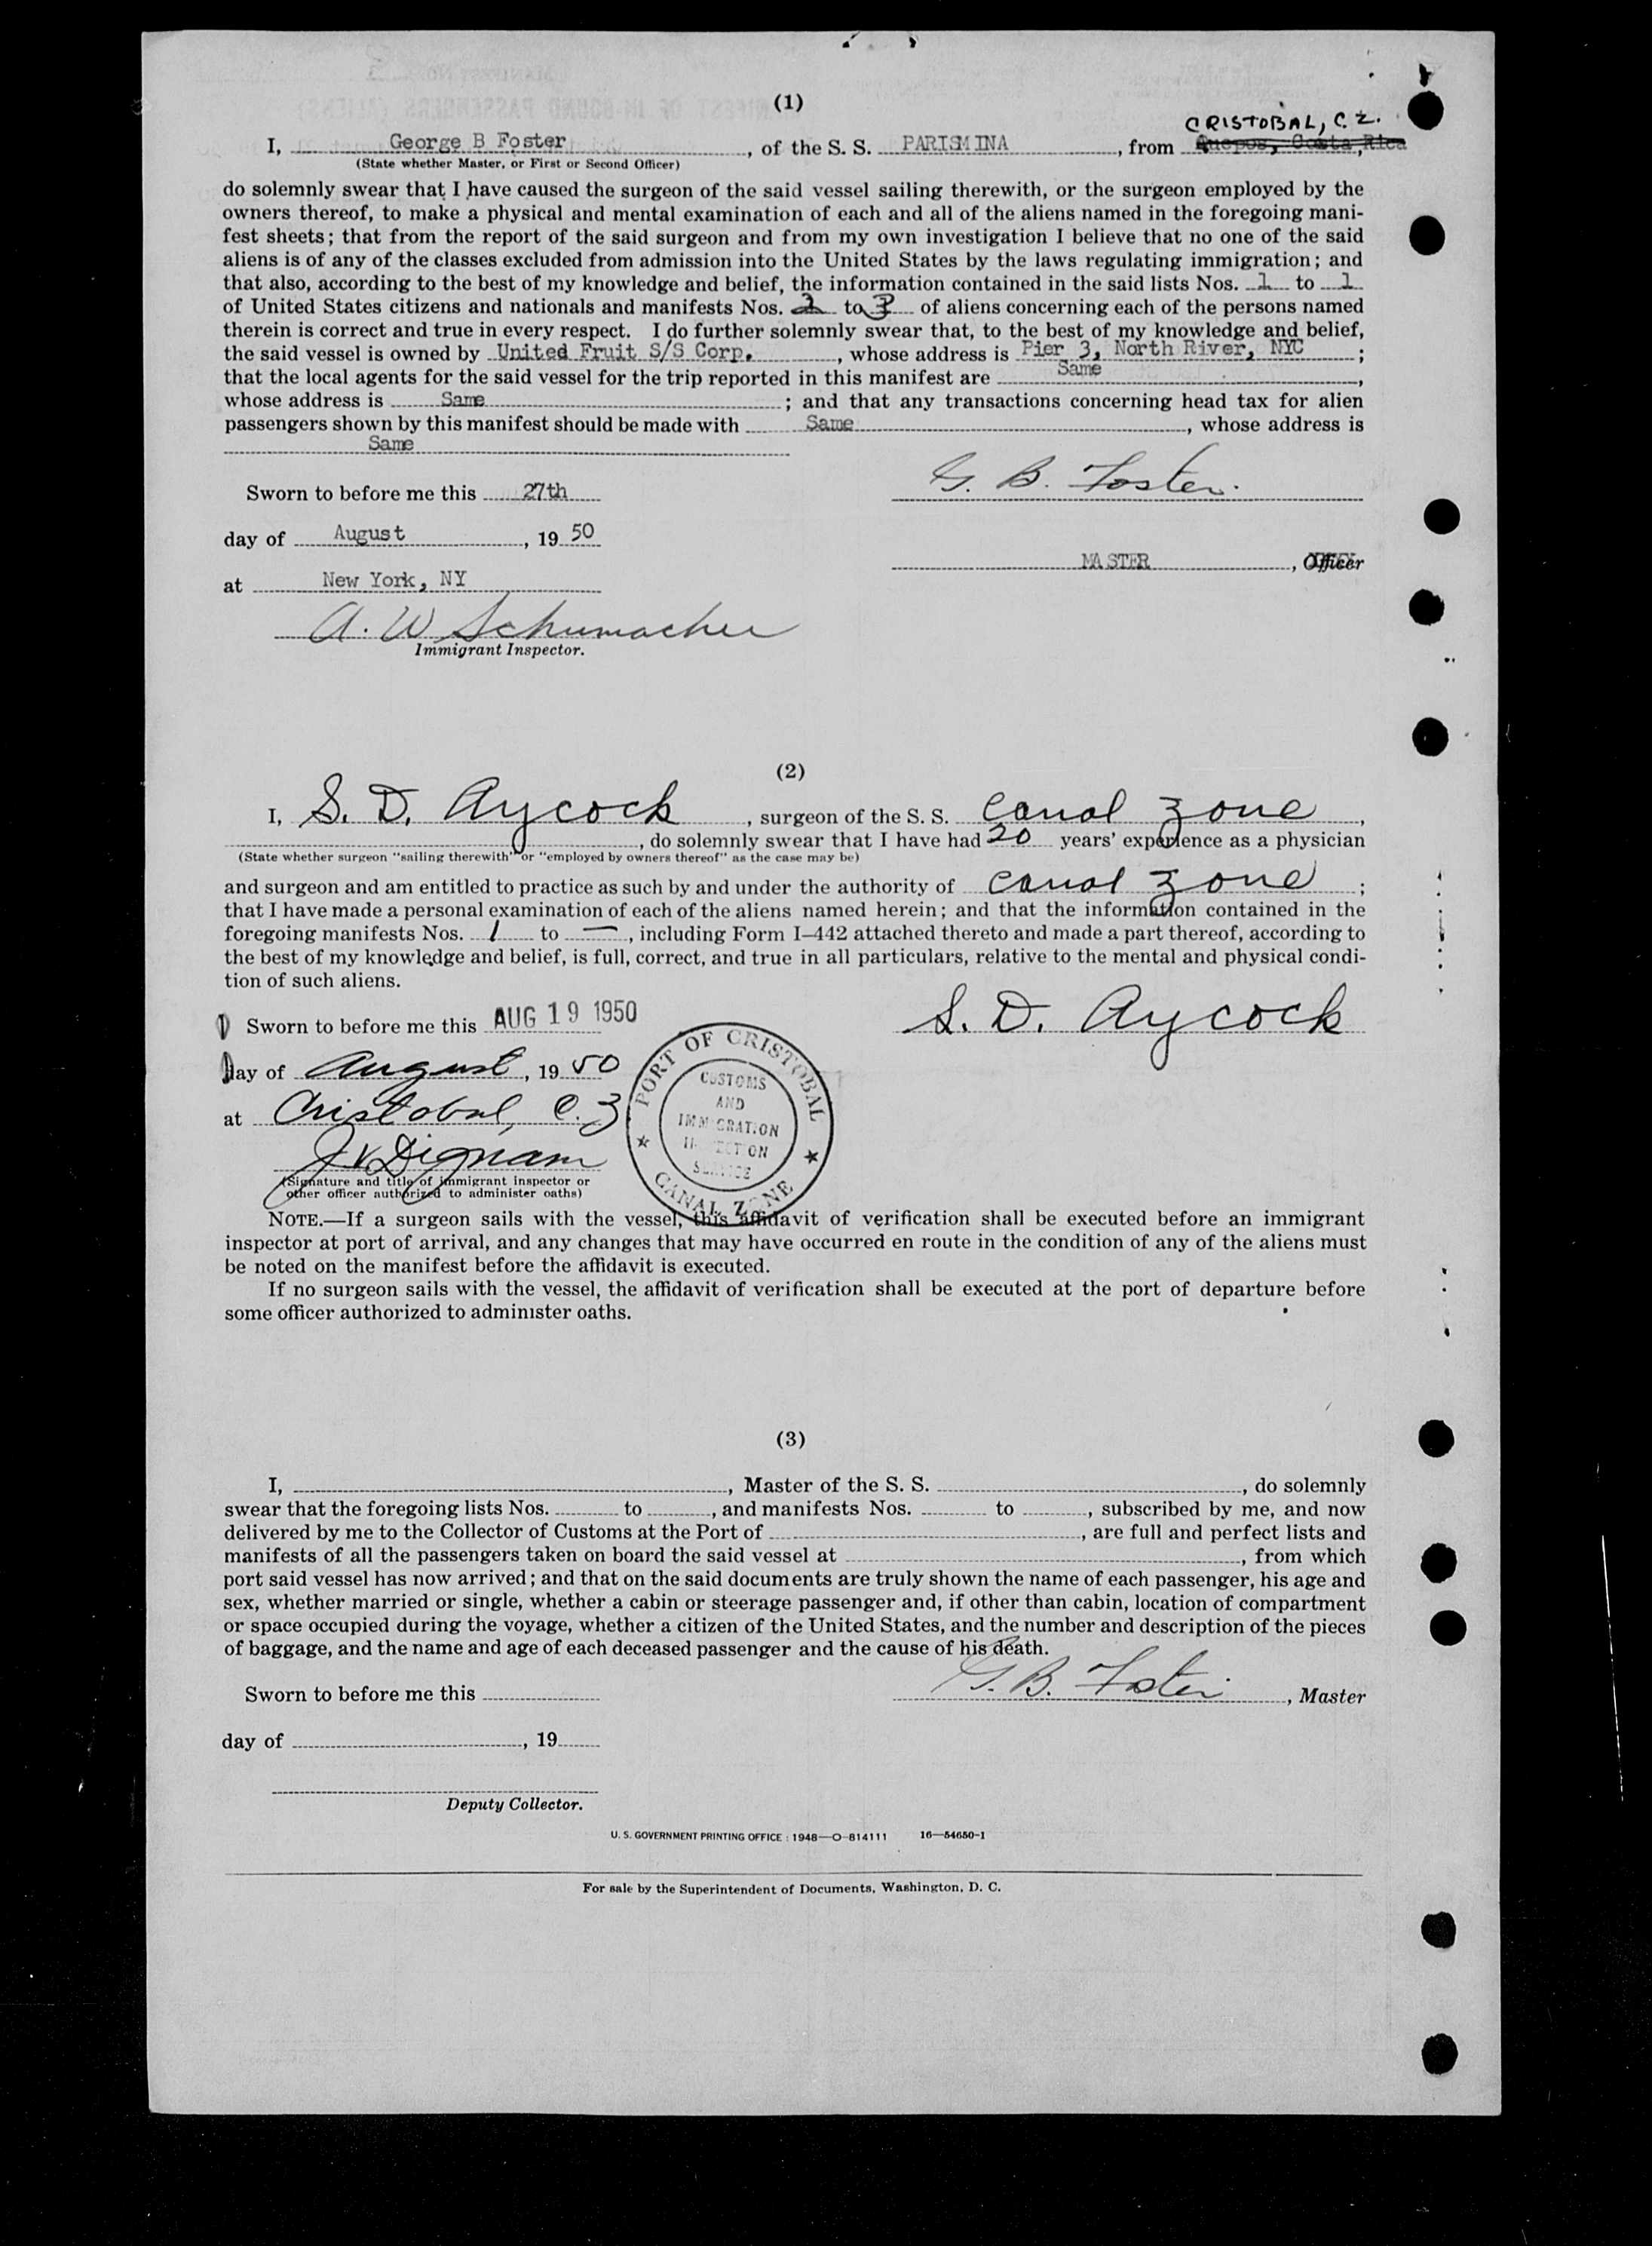 (1)
CRISTOBAL, C. Z.
I, George B Foster, of the S. S. PARISMINA, from Quepos, Costa, Rica
(State whether Master, or First or Second Officer)
do solemnly swear that I have caused the surgeon of the said vessel sailing therewith, or the surgeon employed by the
owners thereof, to make a physical and mental examination of each and all of the aliens named in the foregoing mani-
fest sheets; that from the report of the said surgeon and from my own investigation I believe that no one of the said
aliens is of any of the classes excluded from admission into the United States by the laws regulating immigration; and
that also, according to the best of my knowledge and belief, the information contained in the said lists Nos. 1 to 1
of United States citizens and nationals and manifests Nos. 2 to 3 of aliens concerning each of the persons named
therein is correct and true in every respect. I do further solemnly swear that, to the best of my knowledge and belief,
the said vessel is owned by United Fruit S/S Corp., whose address is Pier 3, North River, NYC;
that the local agents for the said vessel for the trip reported in this manifest are Same,
whose address is Same; and that any transactions concerning head tax for alien
passengers shown by this manifest should be made with Same, whose address is
Same
Sworn to before me this 27th
G. B. Foster.
day of August, 19 50
MASTER, Officer
at New York, NY
A. W Schumacher
Immigrant Inspector.
(2)
I, S. D. Aycock, surgeon of the S. S. Canal Zone,
, do solemnly swear that I have had 20 years' experience as a physician
(State whether surgeon "sailing therewith" or "employed by owners thereof" as the case may be)
and surgeon and am entitled to practice as such by and under the authority of Canal Zone;
that I have made a personal examination of each of the aliens named herein; and that the information contained in the
foregoing manifests Nos. 1 to —, including Form I–442 attached thereto and made a part thereof, according to
the best of my knowledge and belief, is full, correct, and true in all particulars, relative to the mental and physical condi-
tion of such aliens.
Sworn to before me this AUG 19 1950
S. D. Aycock
day of August, 19 50
at Cristobal, C. Z
J V Dignam
(Signature and title of immigrant inspector or
other officer authorized to administer oaths)
PORT OF CRISTOBAL
CUSTOMS
AND
IMMIGRATION
INSPECTION
SERVICE
CANAL ZONE
NOTE.—If a surgeon sails with the vessel, this affidavit of verification shall be executed before an immigrant
inspector at port of arrival, and any changes that may have occurred en route in the condition of any of the aliens must
be noted on the manifest before the affidavit is executed.
If no surgeon sails with the vessel, the affidavit of verification shall be executed at the port of departure before
some officer authorized to administer oaths.
(3)
I, , Master of the S. S. , do solemnly
swear that the foregoing lists Nos. to , and manifests Nos. to , subscribed by me, and now
delivered by me to the Collector of Customs at the Port of , are full and perfect lists and
manifests of all the passengers taken on board the said vessel at , from which
port said vessel has now arrived; and that on the said documents are truly shown the name of each passenger, his age and
sex, whether married or single, whether a cabin or steerage passenger and, if other than cabin, location of compartment
or space occupied during the voyage, whether a citizen of the United States, and the number and description of the pieces
of baggage, and the name and age of each deceased passenger and the cause of his death.
Sworn to before me this
G. B. Foster, Master
day of , 19
Deputy Collector.
U. S. GOVERNMENT PRINTING OFFICE : 1948—O-814111 16—54650-1
For sale by the Superintendent of Documents, Washington, D. C.